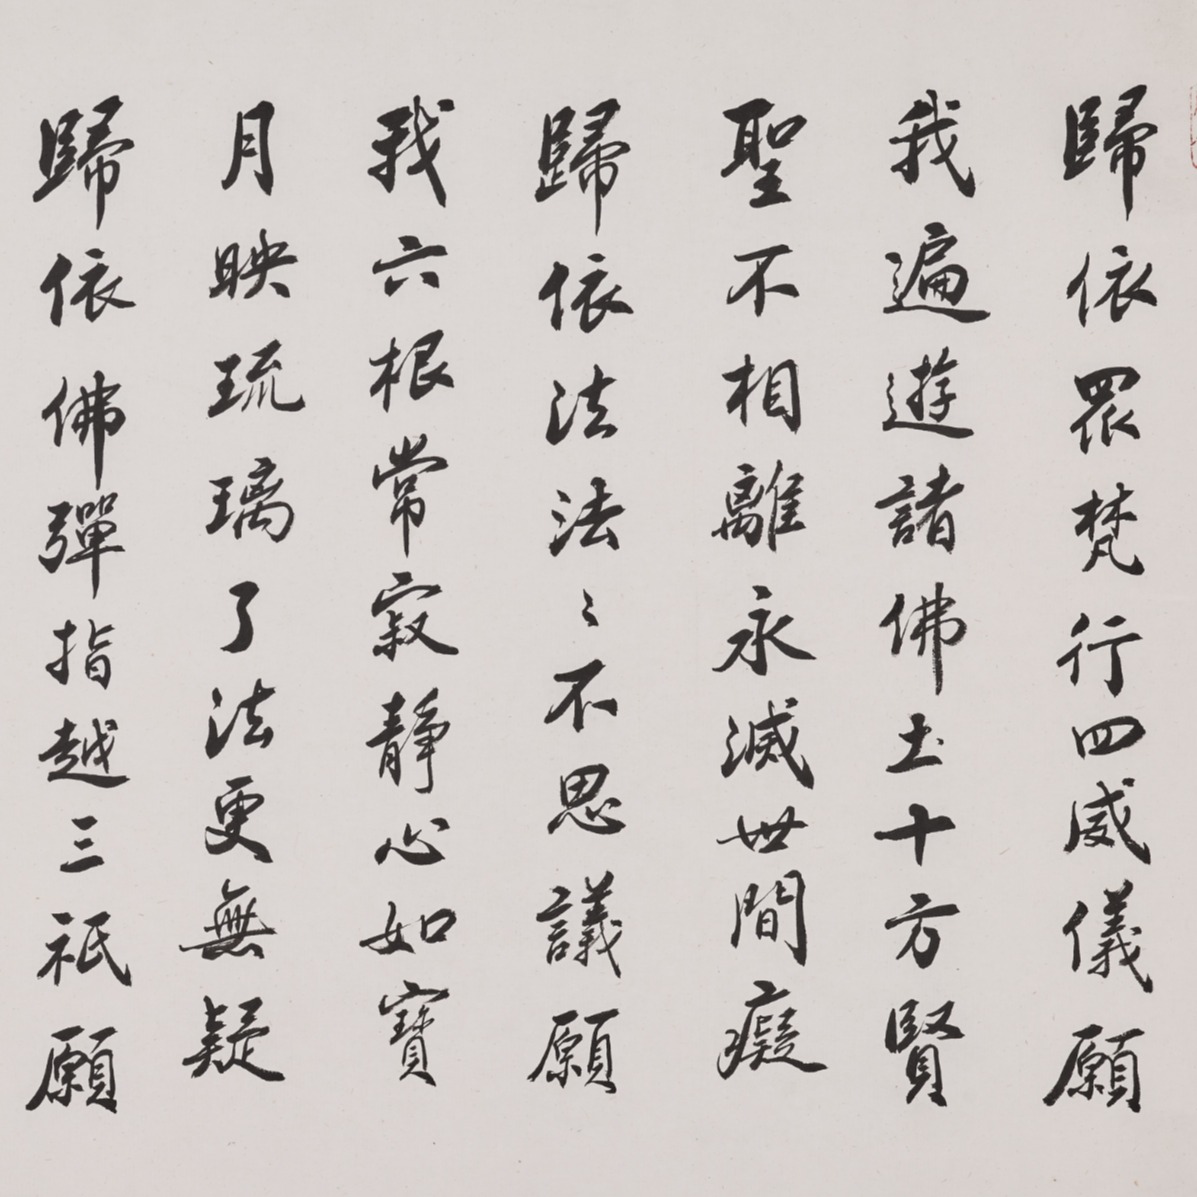 歸依眾梵行四威儀願
我遍遊諸佛土十方賢
聖不相離永滅世間癡
歸依法法〻不思議願
我六根常寂靜心如寶
月映琉璃了法更無疑
歸依佛彈指越三祇願